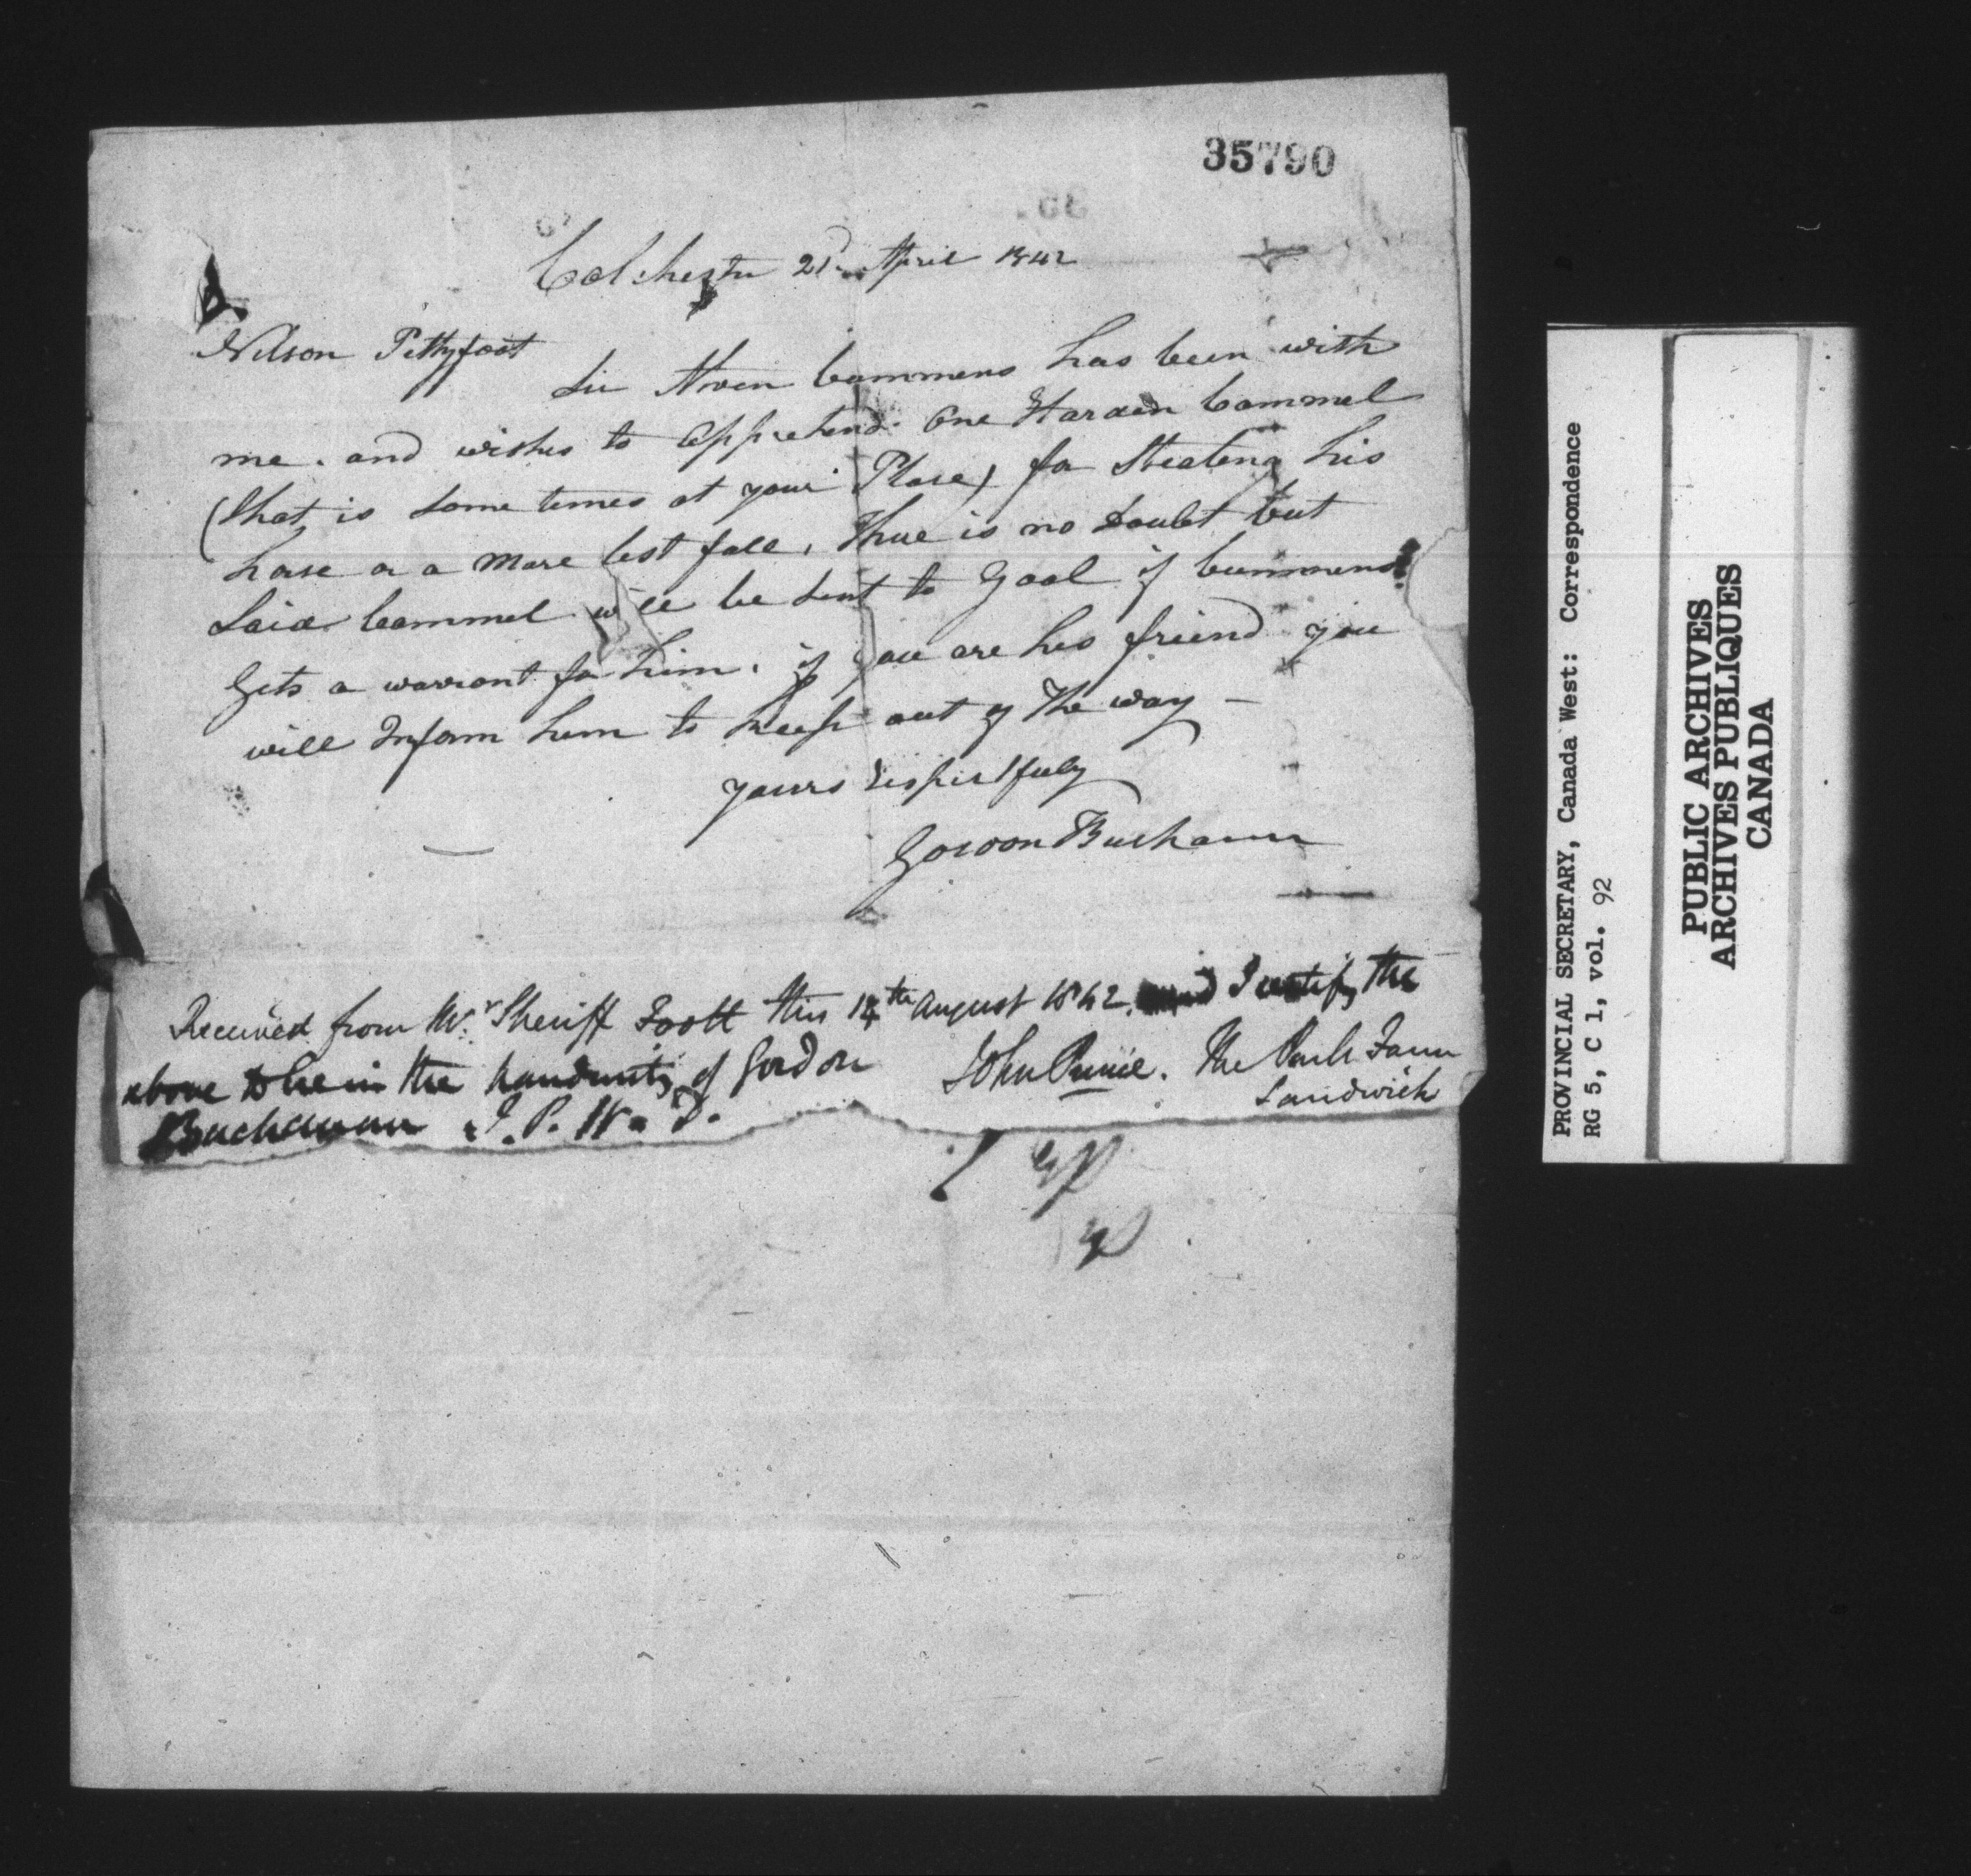 35790
Colchester 21st April 1842
A.
Nelson Pettyfoot
Sir Noen Cummens has been with
me. and wishes to apprehend. One Harden Cammel
(that is some times at your Place) for Stealing his
horse or a mare last fall. Thare is no doubt but
Said Cammel will be sent to Goal if Cummens
Gets a warrant for him. if you are his friend you
will Inform him to keep out of the way –
yours respectfuly
Gordon Buchanan
Received from Mr. Sheriff Foott this 14th August 1842. I certify the
above to be in the handwriting of Gordon
Buchanan J. P. W. D.
John Prince. The Park Farm
Sandwich
PROVINCIAL SECRETARY, Canada West: Correspondence
RG 5, C 1, vol. 92
PUBLIC ARCHIVES
ARCHIVES PUBLIQUES
CANADA